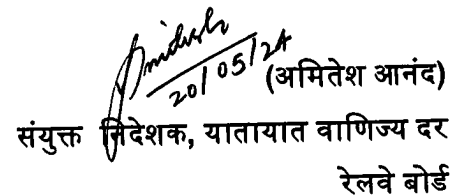 Amitesh
20/05/24
(अमितेश आनंद)
संयुक्त निदेशक, यातायात वाणिज्य दर
रेलवे बोर्ड